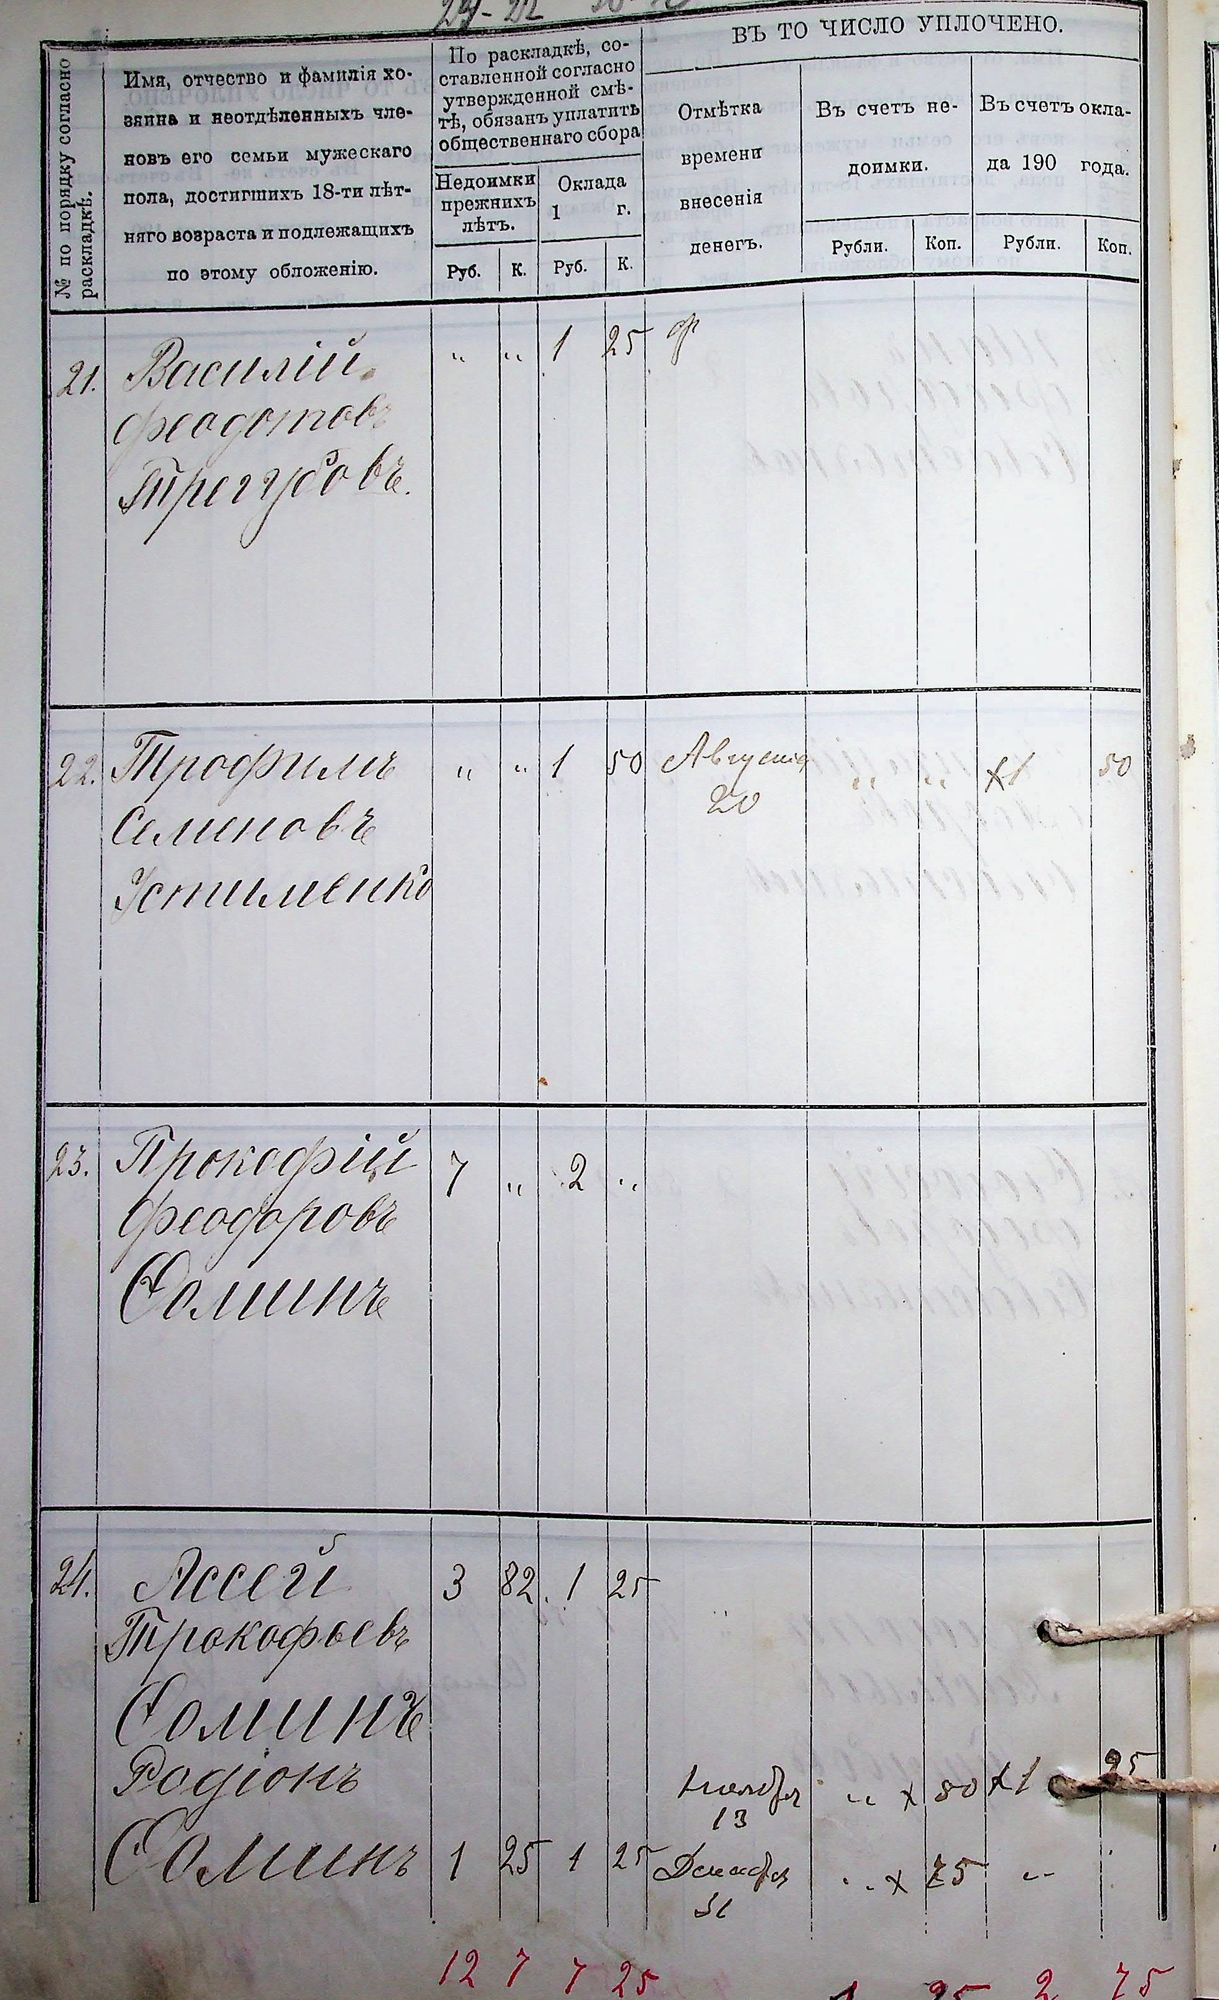 ВЪ ТО ЧИСЛО УПЛОЧЕНО.
№ по порядку согласно
раскладкѣ.
Имя, отчество и фамилія хо-
зяина и неотдѣленныхъ чле-
новъ его семьи мужескаго
пола, достигшихъ 18-ти лѣт-
няго возраста и подлежащихъ
по этому обложенію.
По раскладкѣ, со-
ставленной согласно
утвержденной смѣ-
тѣ, обязанъ уплатить
общественнаго сбора
Недоимки
прежнихъ
лѣтъ.
Оклада
1 г.
Руб. К. Руб. К.
Отмѣтка
времени
внесенія
денегъ.
Въ счетъ не-
доимки.
Въ счетъ окла-
да 190 года.
Рубли. Коп. Рубли. Коп.
21. Василій " " 1 25
Феодотовъ
Трегубовъ.
22. Трофимъ " " 1 50 Августа " " х1 50
Семеновъ 20
Устименко
23. Прокофій 7 " 2 "
Феодоровъ
Соминъ
24. Ассей 3 82 1 25
Прокофьевъ
Соминъ
Родіонъ Ноября " х 50 х1 25
13
Соминъ 1 25 1 25 Декабря " х 75 "
31
12 7 7 25 1 25 2 75